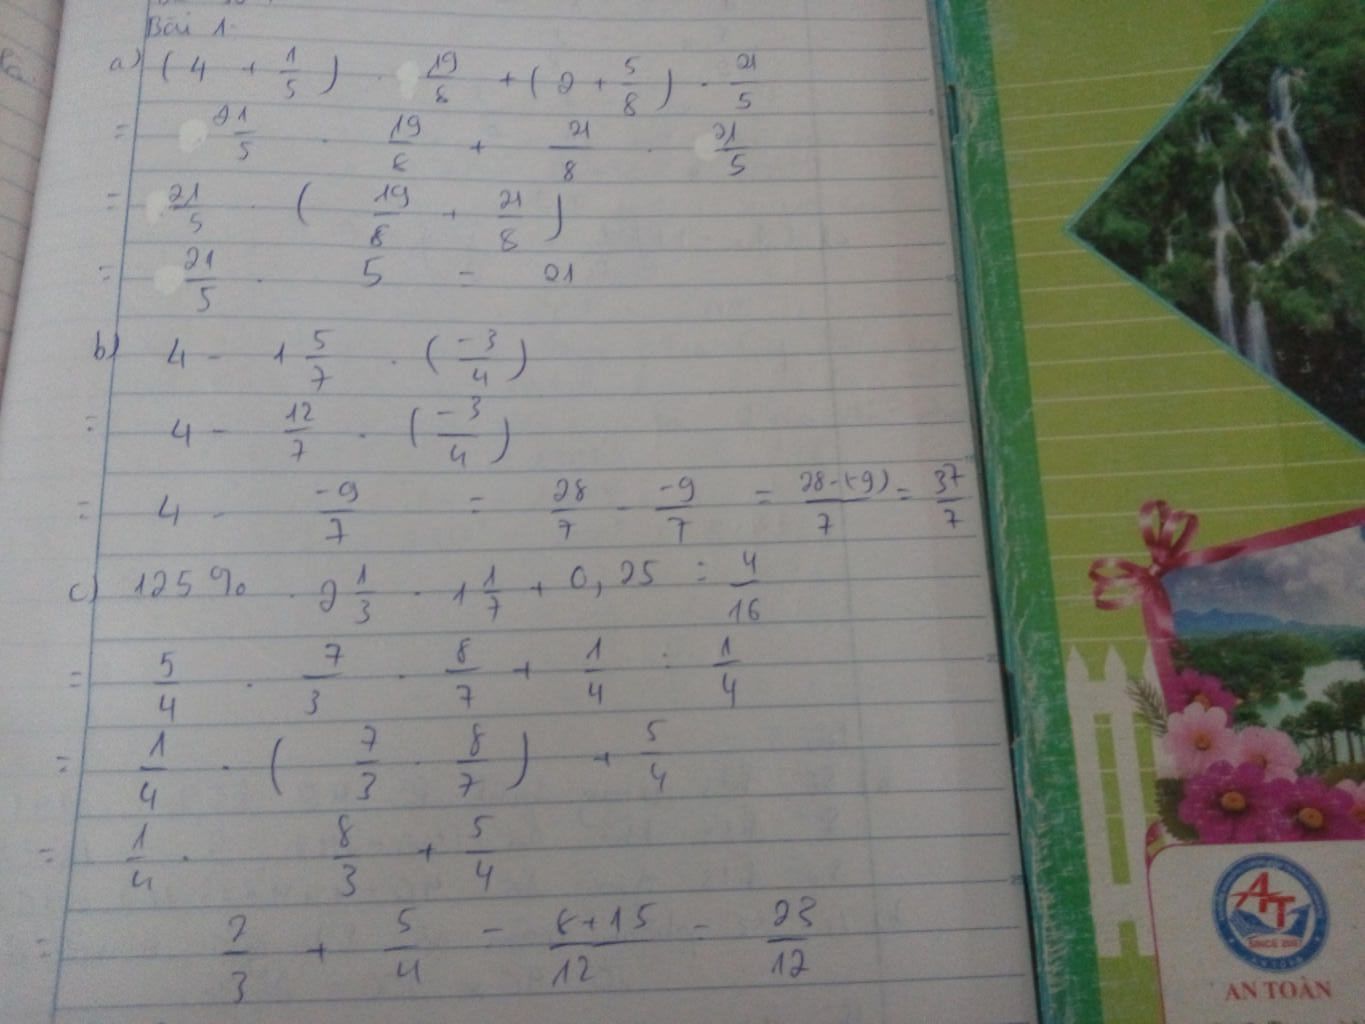 Bài 1.
a) ( 4 + 1/5 ) . 19/8 + ( 2 + 5/8 ) . 21/5
= 21/5 . 19/8 + 21/8 . 21/5
= 21/5 . ( 19/8 + 21/8 )
= 21/5 . 5 = 21
b) 4 - 1 5/7 . ( -3/4 )
= 4 - 12/7 . ( -3/4 )
= 4 - -9/7 = 28/7 - -9/7 = 28-(-9)/7 = 37/7
c) 125% . 2 1/3 . 1 1/7 + 0,25 : 4/16
= 5/4 . 7/3 . 8/7 + 1/4 : 1/4
= 1/4 . ( 7/3 . 8/7 ) + 5/4
= 1/4 . 8/3 + 5/4
= 2/3 + 5/4 = 8+15/12 = 23/12
AT
SINCE
AN TOÀN